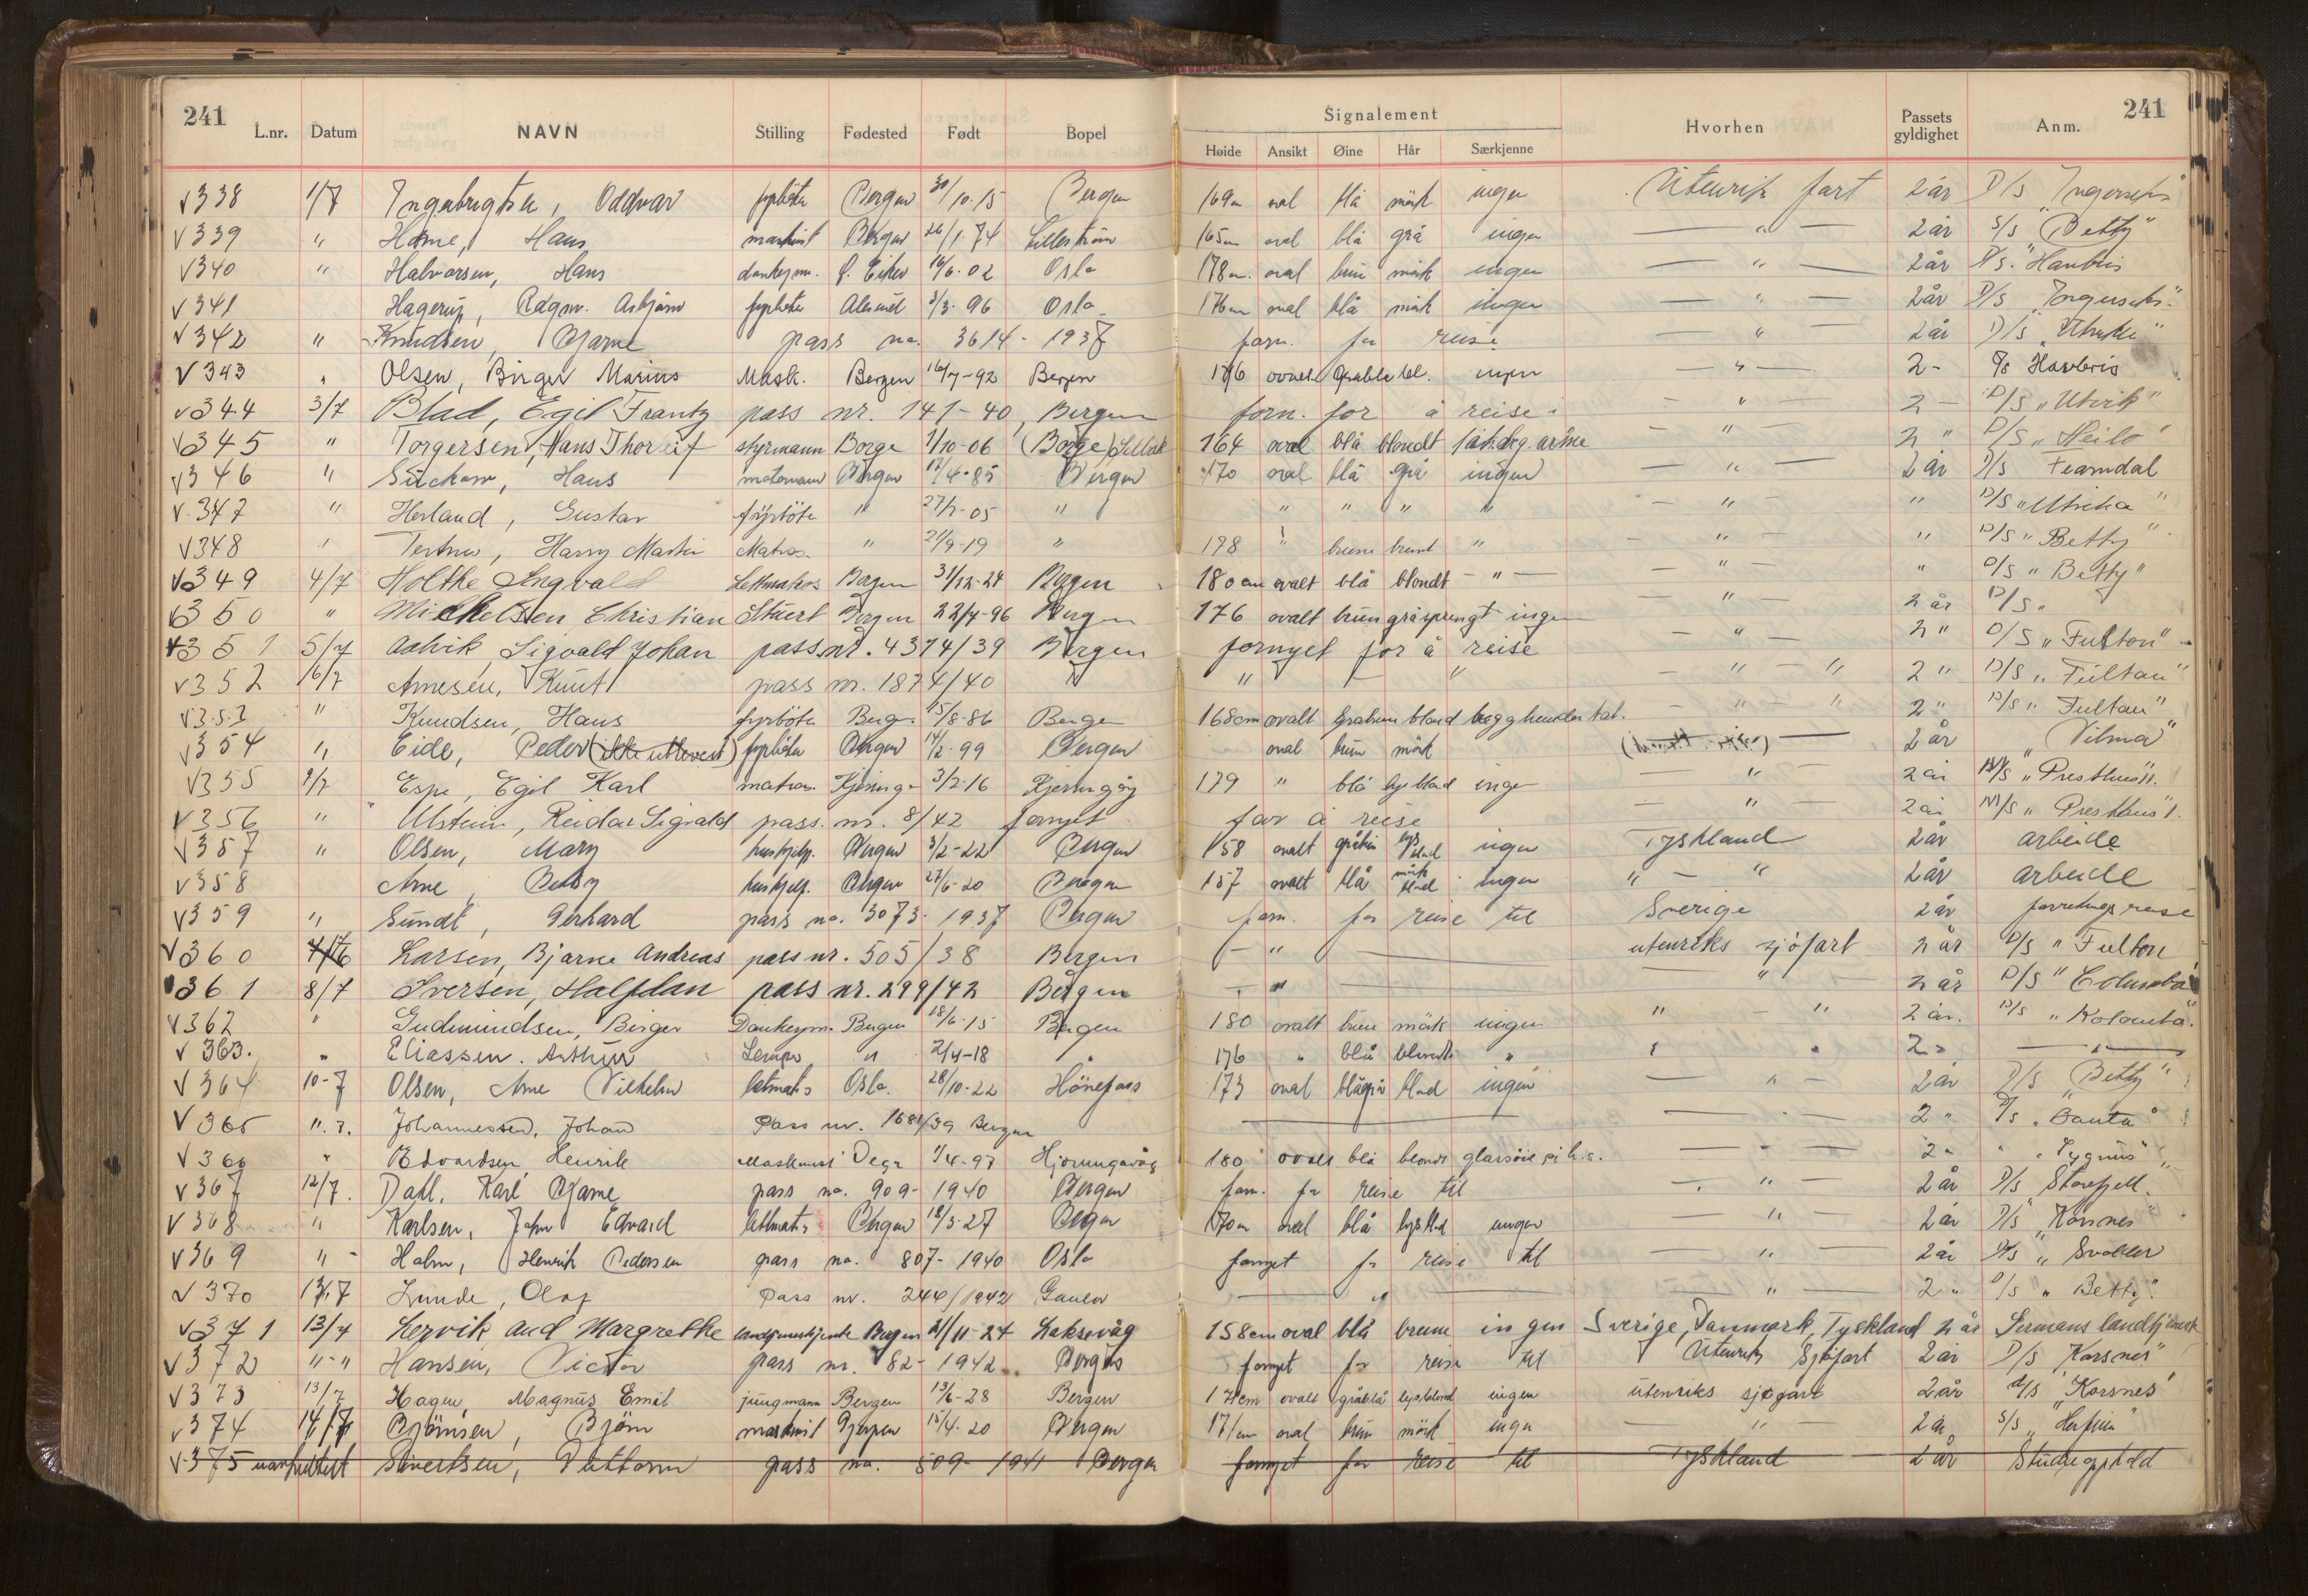 241 241
L.nr. Datum NAVN Stilling Fødested Født Bopel Signalement Hvorhen Passets gyldighet Anm.
Høide Ansikt Øine Hår Særkjenne
V338 1/7 Ingebrigtsen, Oddvar fyrböter Bergen 30/10-15 Bergen 169cm oval blå mörk ingen Utenriks fart 2 år D/S
V339 " Hans maskinist Bergen 26/1-74 Lilleström 165cm oval blå grå ingen — " — 2 år S/S "Betty"
V340 " Halvorsen, Hans donkeym. 16/6-02 Oslo 178cm. oval brun mörk ingen — " — 2 år D/S.
V341 Hagerup, Ragnv. Asbjörn fyrböter Alesund 3/3-96 Oslo 176cm oval blå mörk ingen — " — 2 år D/S
V342 " Knudsen, Bjarne pass no. 3614-1937 forn. for reise — " — 2 år D/S
V343 " Olsen, Birger Marius Mask. Bergen 16/7-92 Bergen 176 ovalt ingen — " — 2 - Havbris
V344 3/7 Blad, Egil Frantz pass nr. 141-40, Bergen forn. for å reise. — " — 2 — D/S "Utvik"
V345 " Torgersen, Hans Thorleif styrmann Borge 1/10-06 (Borge) 164 oval blå blondt — " — 2 " D/S "Heilo"
V346 " Hans matros Bergen 17/4-85 Bergen 170 oval blå grå ingen — " — 2 år D/S
V347 " Herland, Gustav fyrböter " 27/7-05 " " " " " " — " — " D/S
V348 " Harry Martin Matros. " 21/9-19 " 178 " brune brunt " — " — " D/S "Betty"
V349 4/7 Holthe Ingvald Lettmatros Bergen 31/12-24 Bergen 180 cm ovalt blå blondt - " - — " — " D/S "Betty"
V350 " Michelsen Christian Stuert Bergen 22/7-96 Bergen 176 ovalt brun gråsprengt ingen — " — 2 år D/S.
V351 5/7 Aalvik, Sigvald Johan pass nr. 4374/39 Bergen fornyet for å reise — " — 2 " D/S "Fulton"
V352 16/7 Arnesen, Knut pass nr. 1874/40 " " — " — " — " 2 " D/S "Fultan"
V353 " Knudsen, Hans fyrböter Bergen 15/8-86 Bergen 168cm ovalt blond — " — " 2 " D/S "Fultan"
V354 " Eide, Peder (ikke utlevert) fyrböter Bergen 14/2-99 Bergen oval brun mörk — 2 år "Vilma"
V355 9/7 Espe, Egil Karl matros 3/2-16 Kjerringöy 179 " blå lys blond ingen — " — 2 år M/S "Presthus".
V356 " Ulstein, Reidar Sigvald pass. nr. 8/42 fornyet for å reise — " — 2 år M/S "Presthus".
V357 " Olsen, Mary hushjelp. Bergen 3/2-22 Bergen 158 ovalt lys blond ingen Tyskland 2 år arbeide
V358 Arne, Betsy hushjelp. Bergen 27/6-20 Bergen 157 ovalt blå mörk blond ingen " — " 2 år arbeide
V359 " Sundt, Gerhard pass no. 3073-1937 Bergen forn. for reise til Sverige 2 år forretningsreise
V360 Larsen, Bjarne Andreas pass nr. 505/38 Bergen — " — utenriks sjöfart 2 år D/S "Fulton
361 8/7 Iversen, Halfdan pass nr. 299/42 Bergen — " — — " — 2 år D/S "Columba"
V362 " Gudmundsen, Birger Donkeym. Bergen 18/6-15 Bergen 180 ovalt brune mörk ingen " — " 2 år. D/S
V363. " Eliassen. Arthur " 2/4-18 " 176 " blå blondt " " " 2 " — " —
V364 10-7 Olsen, Arne Vilhelm lettmatros Oslo. 28/10-22 Hönefoss 173 oval blågrå blond ingen — " — 2 år D/S "Betty"
V365 11.7. Johannessen, Johan Pass nr. 1681/39 Bergen — — " — 2 "
V366 " Edvardsen, Henrik Maskinist 1/4-97 Hjörungavåg 180 ovalt blå blondt glassöie på h.s. — " — 2 "
V367 12/7. Dahl, Karl Bjarne pass no. 909-1940 Bergen forn. for reise til — " — 2 år D/S Storefjell.
V368 " Karlsen, John Edvard lettmatros Bergen 18/3-27 Bergen 170cm oval blå lysblond ingen — " — 2 år D/S "Korsnes"
V369 " - Holm, Henrik Pedersen pass no. 807-1940 Oslo fornyet for reise til — " — 2 år D/S "Svolder
V370 13/7 Lunde, Olaf Pass nr. 244/1942 — " — — " — 2 " D/S "Betty".
V371 13/7 Lervik Aud Margrethe Bergen 21/11-24 Laksevåg 158cm oval blå brune ingen Sverige, Danmark, Tyskland 2 år
V372 "-" Hansen, Victor pass nr. 82-1942. Bergen fornyet for reise til Utenriks Sjöfart 2 år D/S "Korsnes"
V373 13/7 Hagen, Magnus Emil jungmann Bergen 13/6-28 Bergen ovalt gråblå lysblond ingen utenriks sjöfart 2 år d/s "Korsnes"
V374 14/7 Björnsen, Björn maskinist Gjerpen 15/4-20 Bergen 171cm oval brun mörk ingen — " — 2 år S/S
V375 Sivertsen, Guttorm pass no. 509-1941 Bergen fornyet for reise til Tyskland 2 år Studieopphold